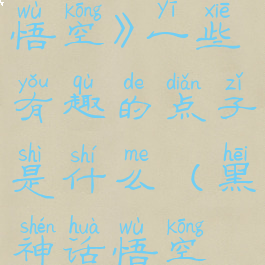 wù kōng yī xiē
悟空》一些
yǒu qù de diǎn zǐ
有趣的点子
shì shí me hēi
是什么（黑
shén huà wù kōng
神话悟空